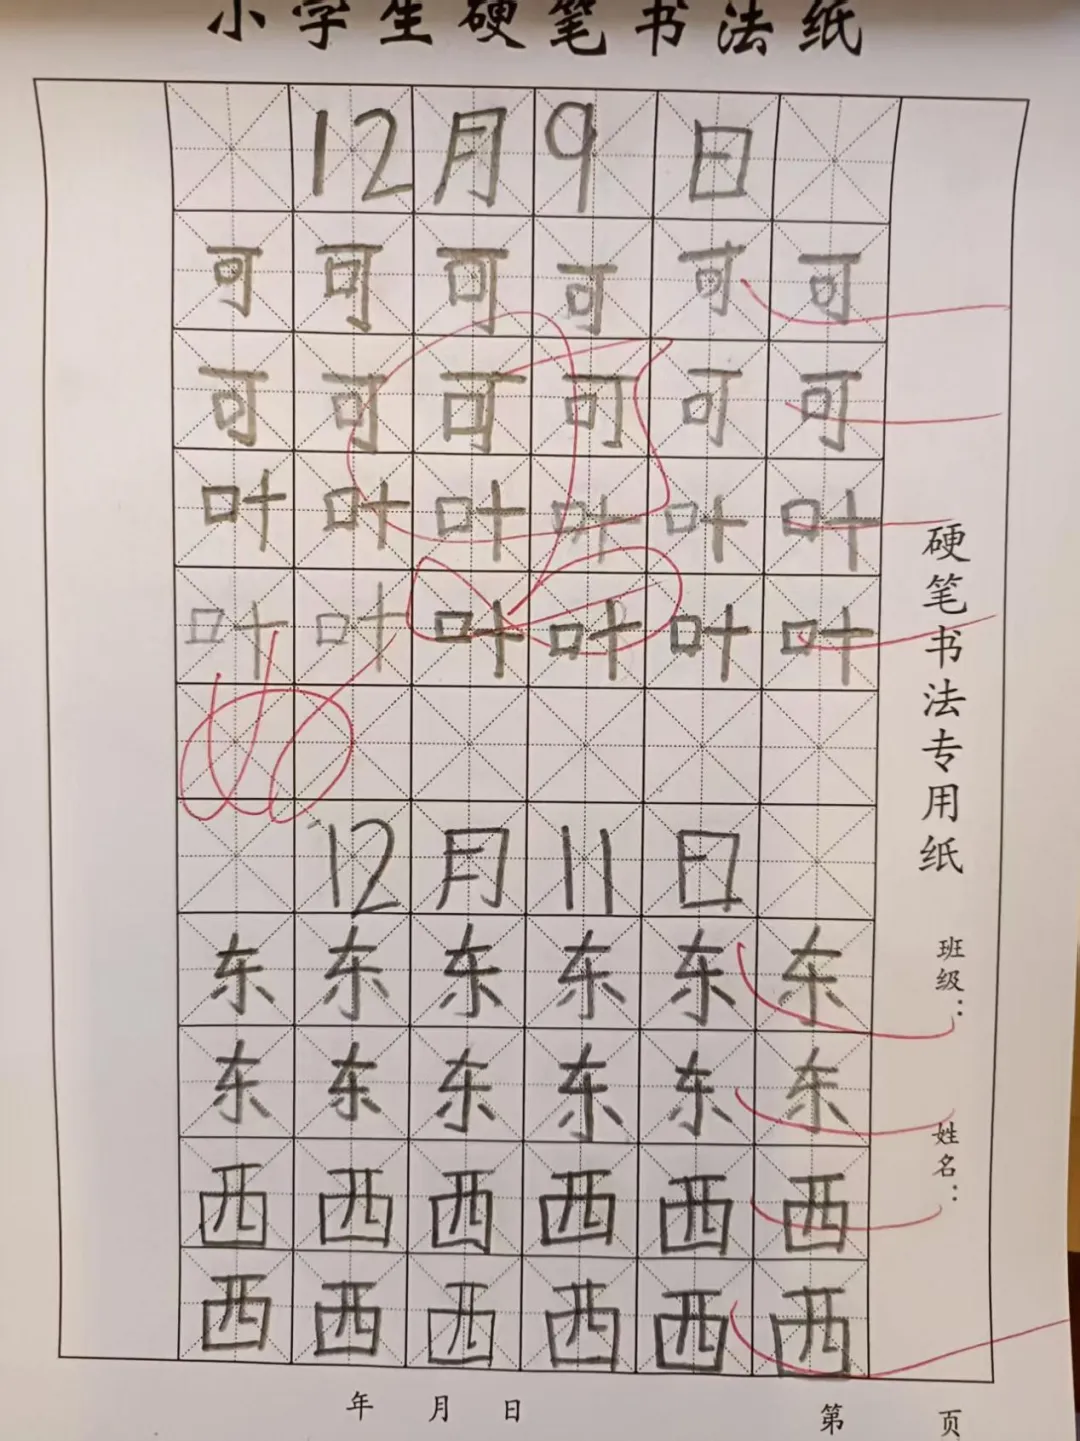 小学生硬笔书法纸
12月9日
可可可可可可
可可可可可可
叶叶叶叶叶叶
叶叶叶叶叶叶
12月11日
东东东东东东
东东东东东东
西西西西西西
西西西西西西
硬笔书法专用纸
班级：
姓名：
年 月 日
第 页